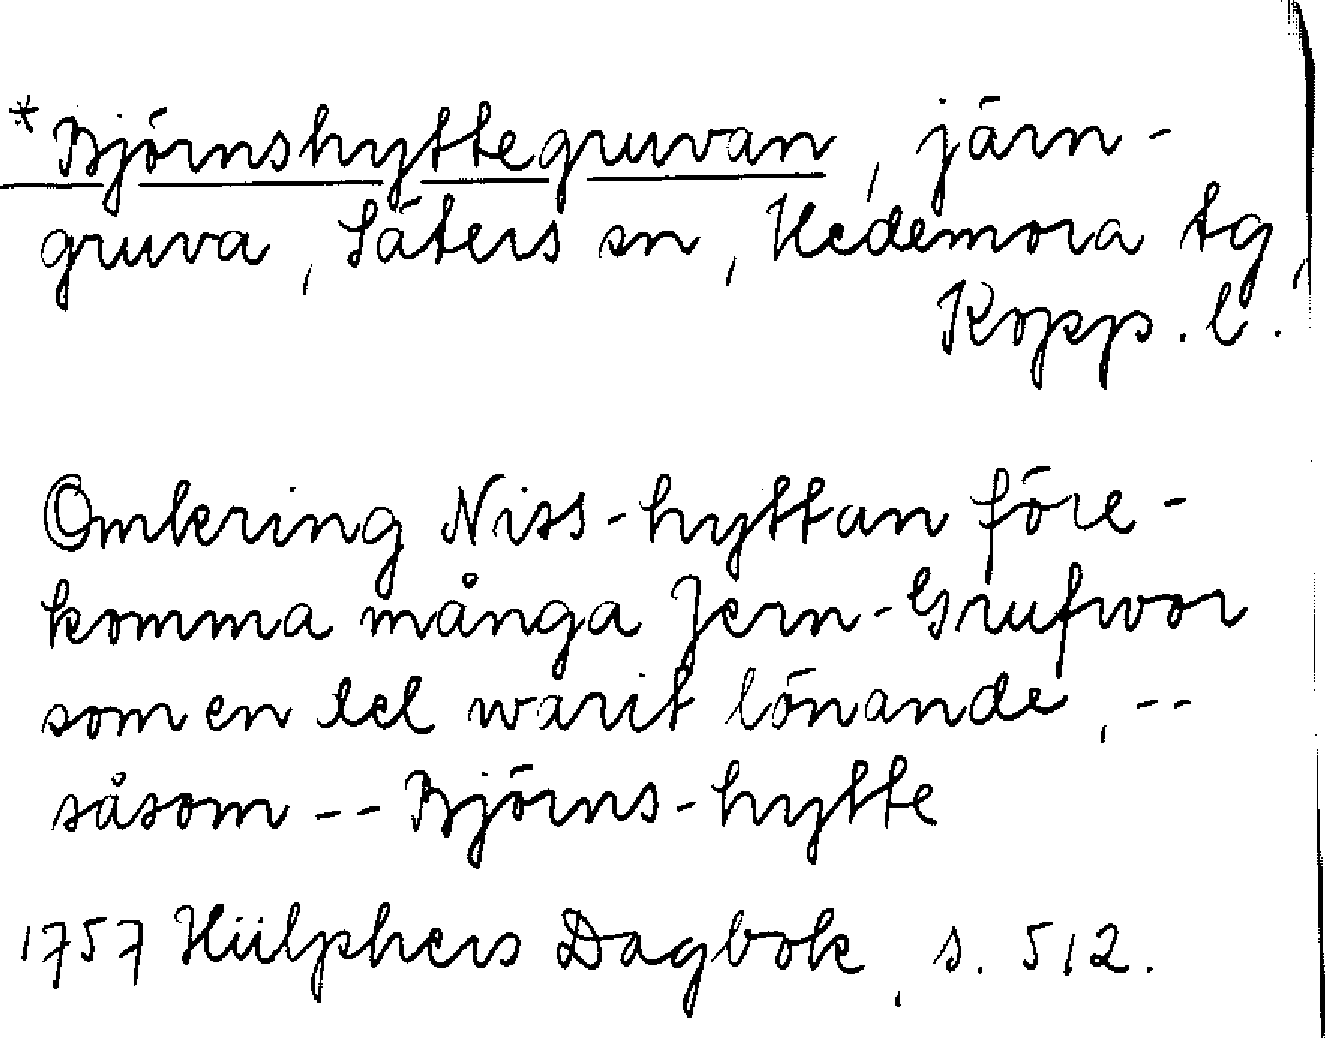 *Björnshyttegruvan, järn-
gruva, Säters sn, Hedemora tg,
Kopp. l.
Omkring Niss-hyttan före-
komma många Jern-Grufwor
som en del warit lönande, --
såsom -- Björns-hytte
1757 Hülphers Dagbok, s. 512.